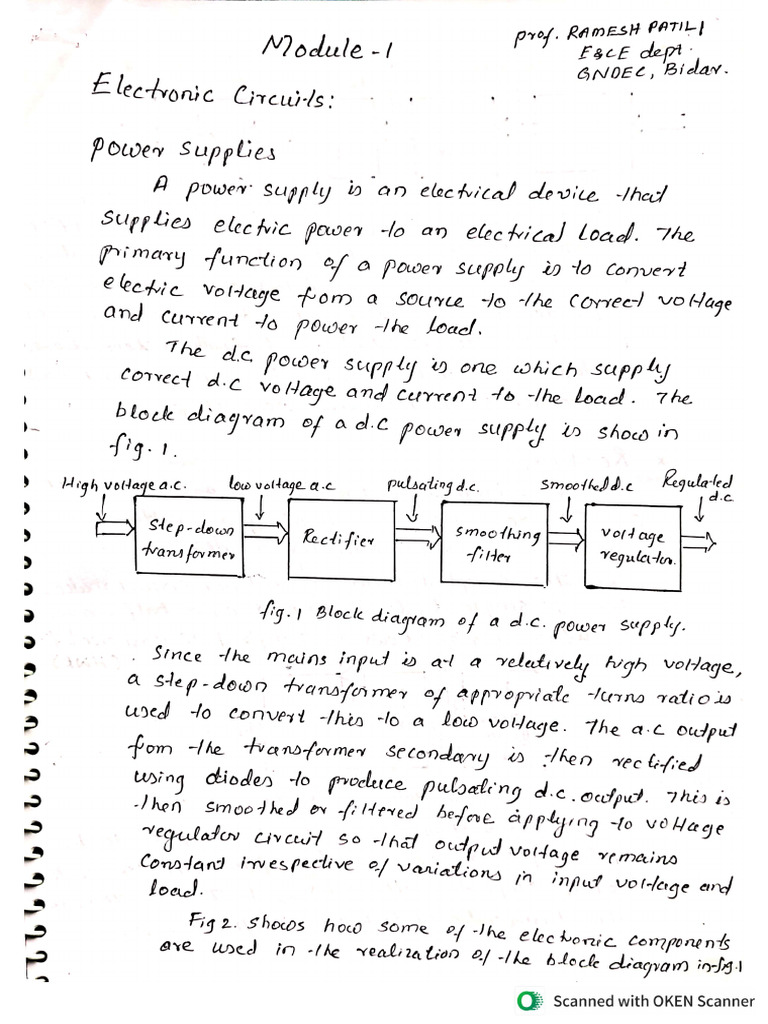 Module-1
prof. RAMESH PATIL
E&CE dept.
GNDEC, Bidar.
Electronic Circuits:
Power supplies
A power supply is an electrical device that
supplies electric power to an electrical load. The
primary function of a power supply is to convert
electric voltage from a source to the correct voltage
and current to power the load.
The d.c. power supply is one which supply
correct d.c voltage and current to the load. The
block diagram of a d.c power supply is show in
fig. 1.
High voltage a.c. low voltage a.c pulsating d.c. smoothed d.c Regulated
d.c
Step-down
transformer
Rectifier
smoothing
filter
voltage
regulator.
fig. 1 Block diagram of a d.c. power supply.
Since the mains input is at a relatively high voltage,
a step-down transformer of appropriate turns ratio is
used to convert this to a low voltage. The a.c output
from the transformer secondary is then rectified
using diodes to produce pulsating d.c. output. This is
then smoothed or filtered before applying to voltage
regulator circuit so that output voltage remains
constant irrespective of variations in input voltage and
load.
Fig 2. shows how some of the electronic components
are used in the realization of the block diagram in fig.1
Scanned with OKEN Scanner